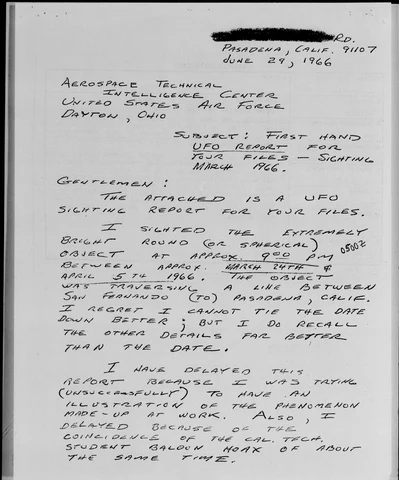 RD.
PASADENA, CALIF. 91107
JUNE 29, 1966
AEROSPACE TECHNICAL
INTELLIGENCE CENTER
UNITED STATES AIR FORCE
DAYTON, OHIO
SUBJECT: FIRST HAND
UFO REPORT FOR
YOUR FILES — SIGHTING
MARCH 1966.
GENTLEMEN:
THE ATTACHED IS A UFO
SIGHTING REPORT FOR YOUR FILES.
I SIGHTED THE EXTREMELY
BRIGHT ROUND (OR SPHERICAL)
OBJECT AT APPROX. 9:00 PM 0500Z
BETWEEN APPROX. MARCH 24TH &
APRIL 5TH 1966. THE OBJECT
WAS TRAVERSING A LINE BETWEEN
SAN FERNANDO (TO) PASADENA, CALIF.
I REGRET I CANNOT TIE THE DATE
DOWN BETTER; BUT I DO RECALL
THE OTHER DETAILS FAR BETTER
THAN THE DATE.
I HAVE DELAYED THIS
REPORT BECAUSE I WAS TRYING
(UNSUCCESSFULLY) TO HAVE AN
ILLUSTRATION OF THE PHENOMENON
MADE-UP AT WORK. ALSO, I
DELAYED BECAUSE OF THE
COINCIDENCE OF THE CAL. TECH.
STUDENT BALOON HOAX OF ABOUT
THE SAME TIME.